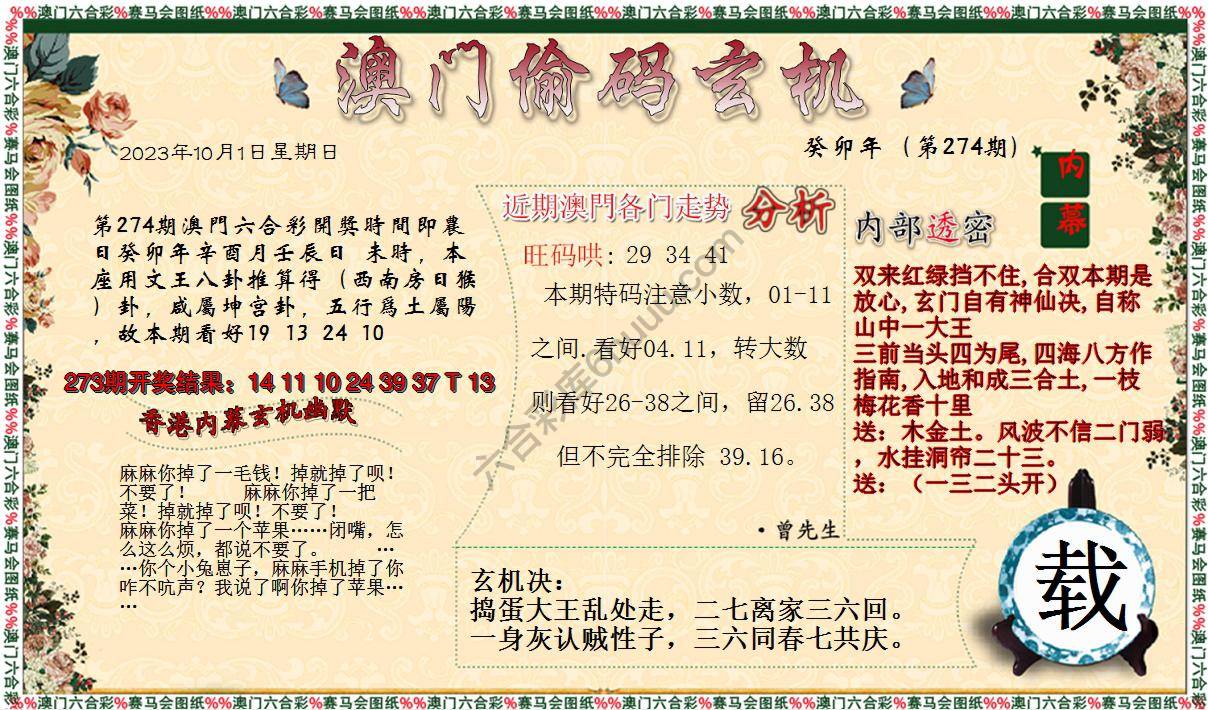 %%澳门六合彩%赛马会图纸%%澳门六合彩%赛马会图纸%%澳门六合彩%赛马会图纸%%澳门六合彩%赛马会图纸%%澳门六合彩%赛马会图纸%%澳门六合彩%赛马会图纸%%
澳门偷码玄机
2023年10月1日星期日
癸卯年（第274期）
内
幕
第274期澳門六合彩開獎時間即農
日癸卯年辛酉月壬辰日 未時，本
座用文王八卦推算得（西南房日猴
）卦，咸屬坤宫卦，五行爲土屬陽
，故本期看好19 13 24 10
273期开奖结果：14 11 10 24 39 37 T 13
香港内幕玄机幽默
麻麻你掉了一毛钱！掉就掉了呗！
不要了！ 麻麻你掉了一把
菜！掉就掉了呗！不要了！
麻麻你掉了一个苹果……闭嘴，怎
么这么烦，都说不要了。 …
…你个小兔崽子，麻麻手机掉了你
咋不吭声？我说了啊你掉了苹果…
…
近期澳門各门走势 分析
旺码哄: 29 34 41
本期特码注意小数，01-11
之间.看好04.11，转大数
则看好26-38之间，留26.38
但不完全排除 39.16。
·曾先生
内部透密
双来红绿挡不住,合双本期是
放心,玄门自有神仙决,自称
山中一大王
三前当头四为尾,四海八方作
指南,入地和成三合土,一枝
梅花香十里
送：木金土。风波不信二门弱
，水挂洞帘二十三。
送：（一三二头开）
玄机决：
捣蛋大王乱处走，二七离家三六回。
一身灰认贼性子，三六同春七共庆。
载
%%澳门六合彩%赛马会图纸%%澳门六合彩%赛马会图纸%%澳门六合彩%赛马会图纸%%澳门六合彩%赛马会图纸%%澳门六合彩%赛马会图纸%%澳门六合彩%赛马会图纸%%